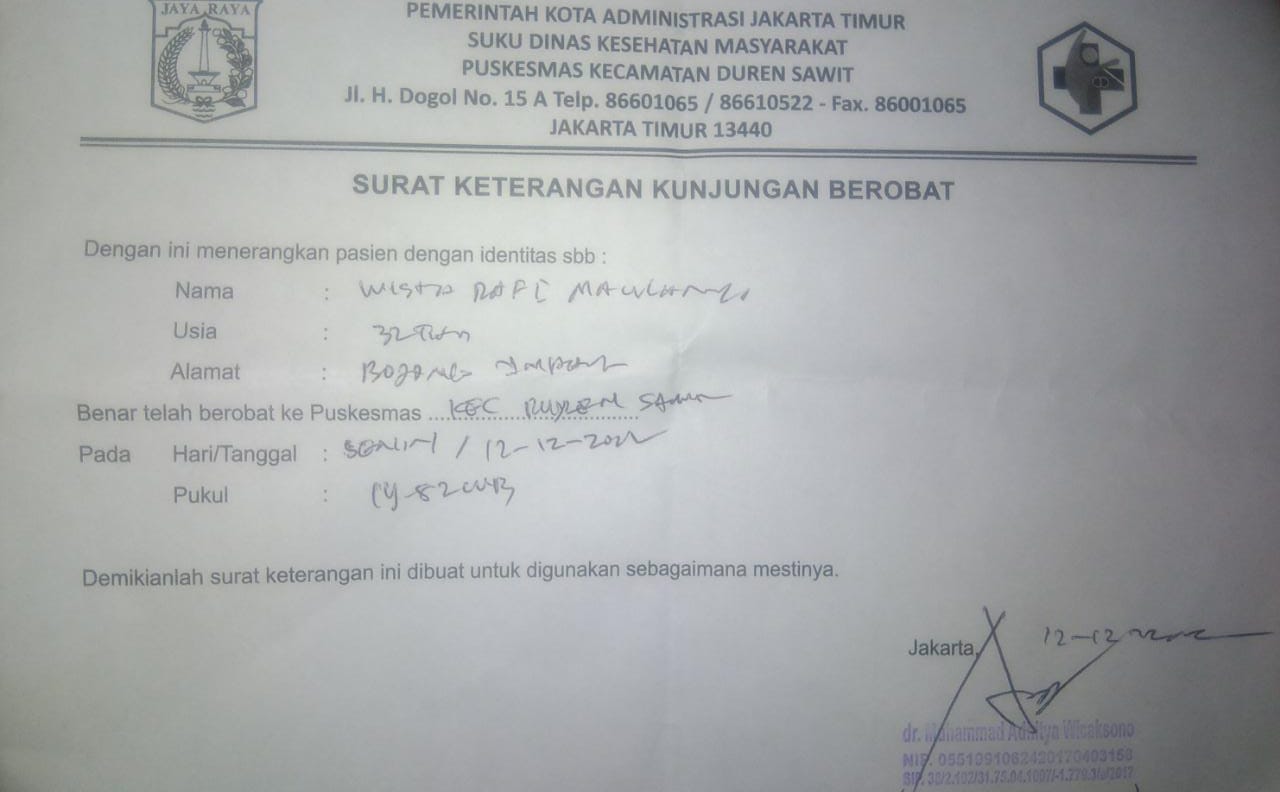 JAYA RAYA
PEMERINTAH KOTA ADMINISTRASI JAKARTA TIMUR
SUKU DINAS KESEHATAN MASYARAKAT
PUSKESMAS KECAMATAN DUREN SAWIT
Jl. H. Dogol No. 15 A Telp. 86601065 / 86610522 - Fax. 86001065
JAKARTA TIMUR 13440
SURAT KETERANGAN KUNJUNGAN BEROBAT
Dengan ini menerangkan pasien dengan identitas sbb :
Nama : RAFI MAULANA
Usia : 32
Alamat : BOJONG
Benar telah berobat ke Puskesmas ... KEC DUREN SAWIT
Pada Hari/Tanggal : SENIN / 12-12-2022
Pukul :
Demikianlah surat keterangan ini dibuat untuk digunakan sebagaimana mestinya.
Jakarta, 12-12-2022
dr. Muhammad Aditya Wicaksono
NIP.
SIP.